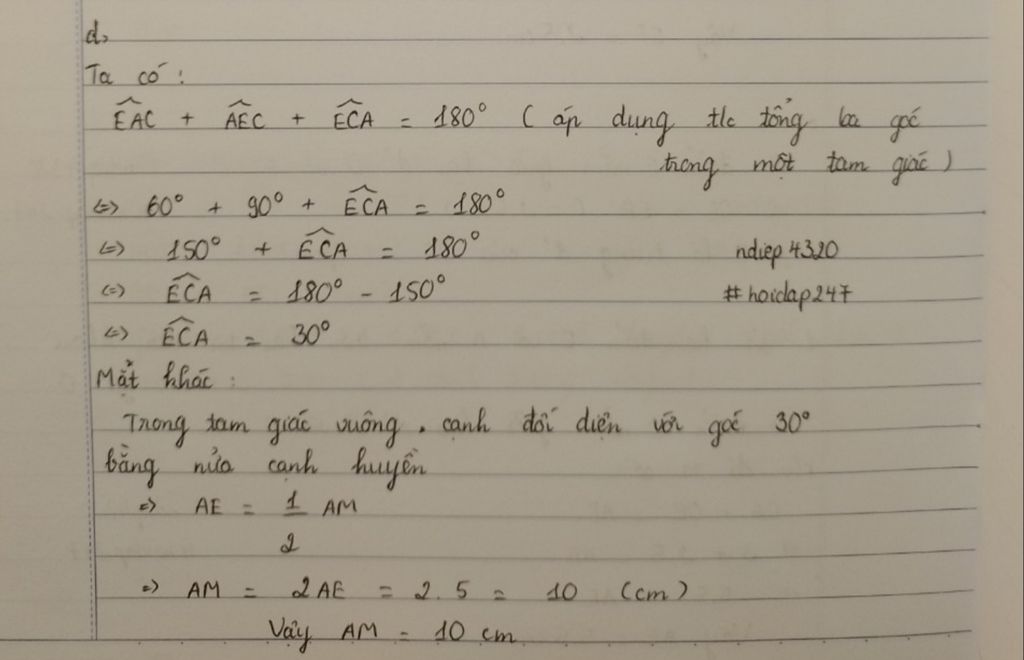 d,
Ta có:
ÊAC + ÂEC + ÊCA = 180° ( áp dụng t/c tổng ba góc
trong một tam giác )
<=> 60° + 90° + ÊCA = 180°
<=> 150° + ÊCA = 180°
ndiep4320
<=> ÊCA = 180° - 150°
#hoidap247
<=> ÊCA = 30°
Mặt khác:
Trong tam giác vuông, cạnh đối diện với góc 30°
bằng nửa cạnh huyền
=> AE = 1/2 AM
=> AM = 2AE = 2.5 = 10 (cm)
Vậy AM = 10 cm